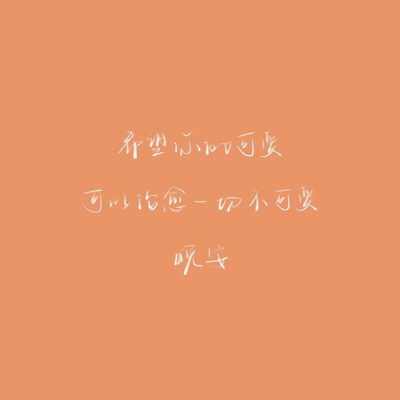 希望你的可爱
可以治愈一切不可爱
晚安